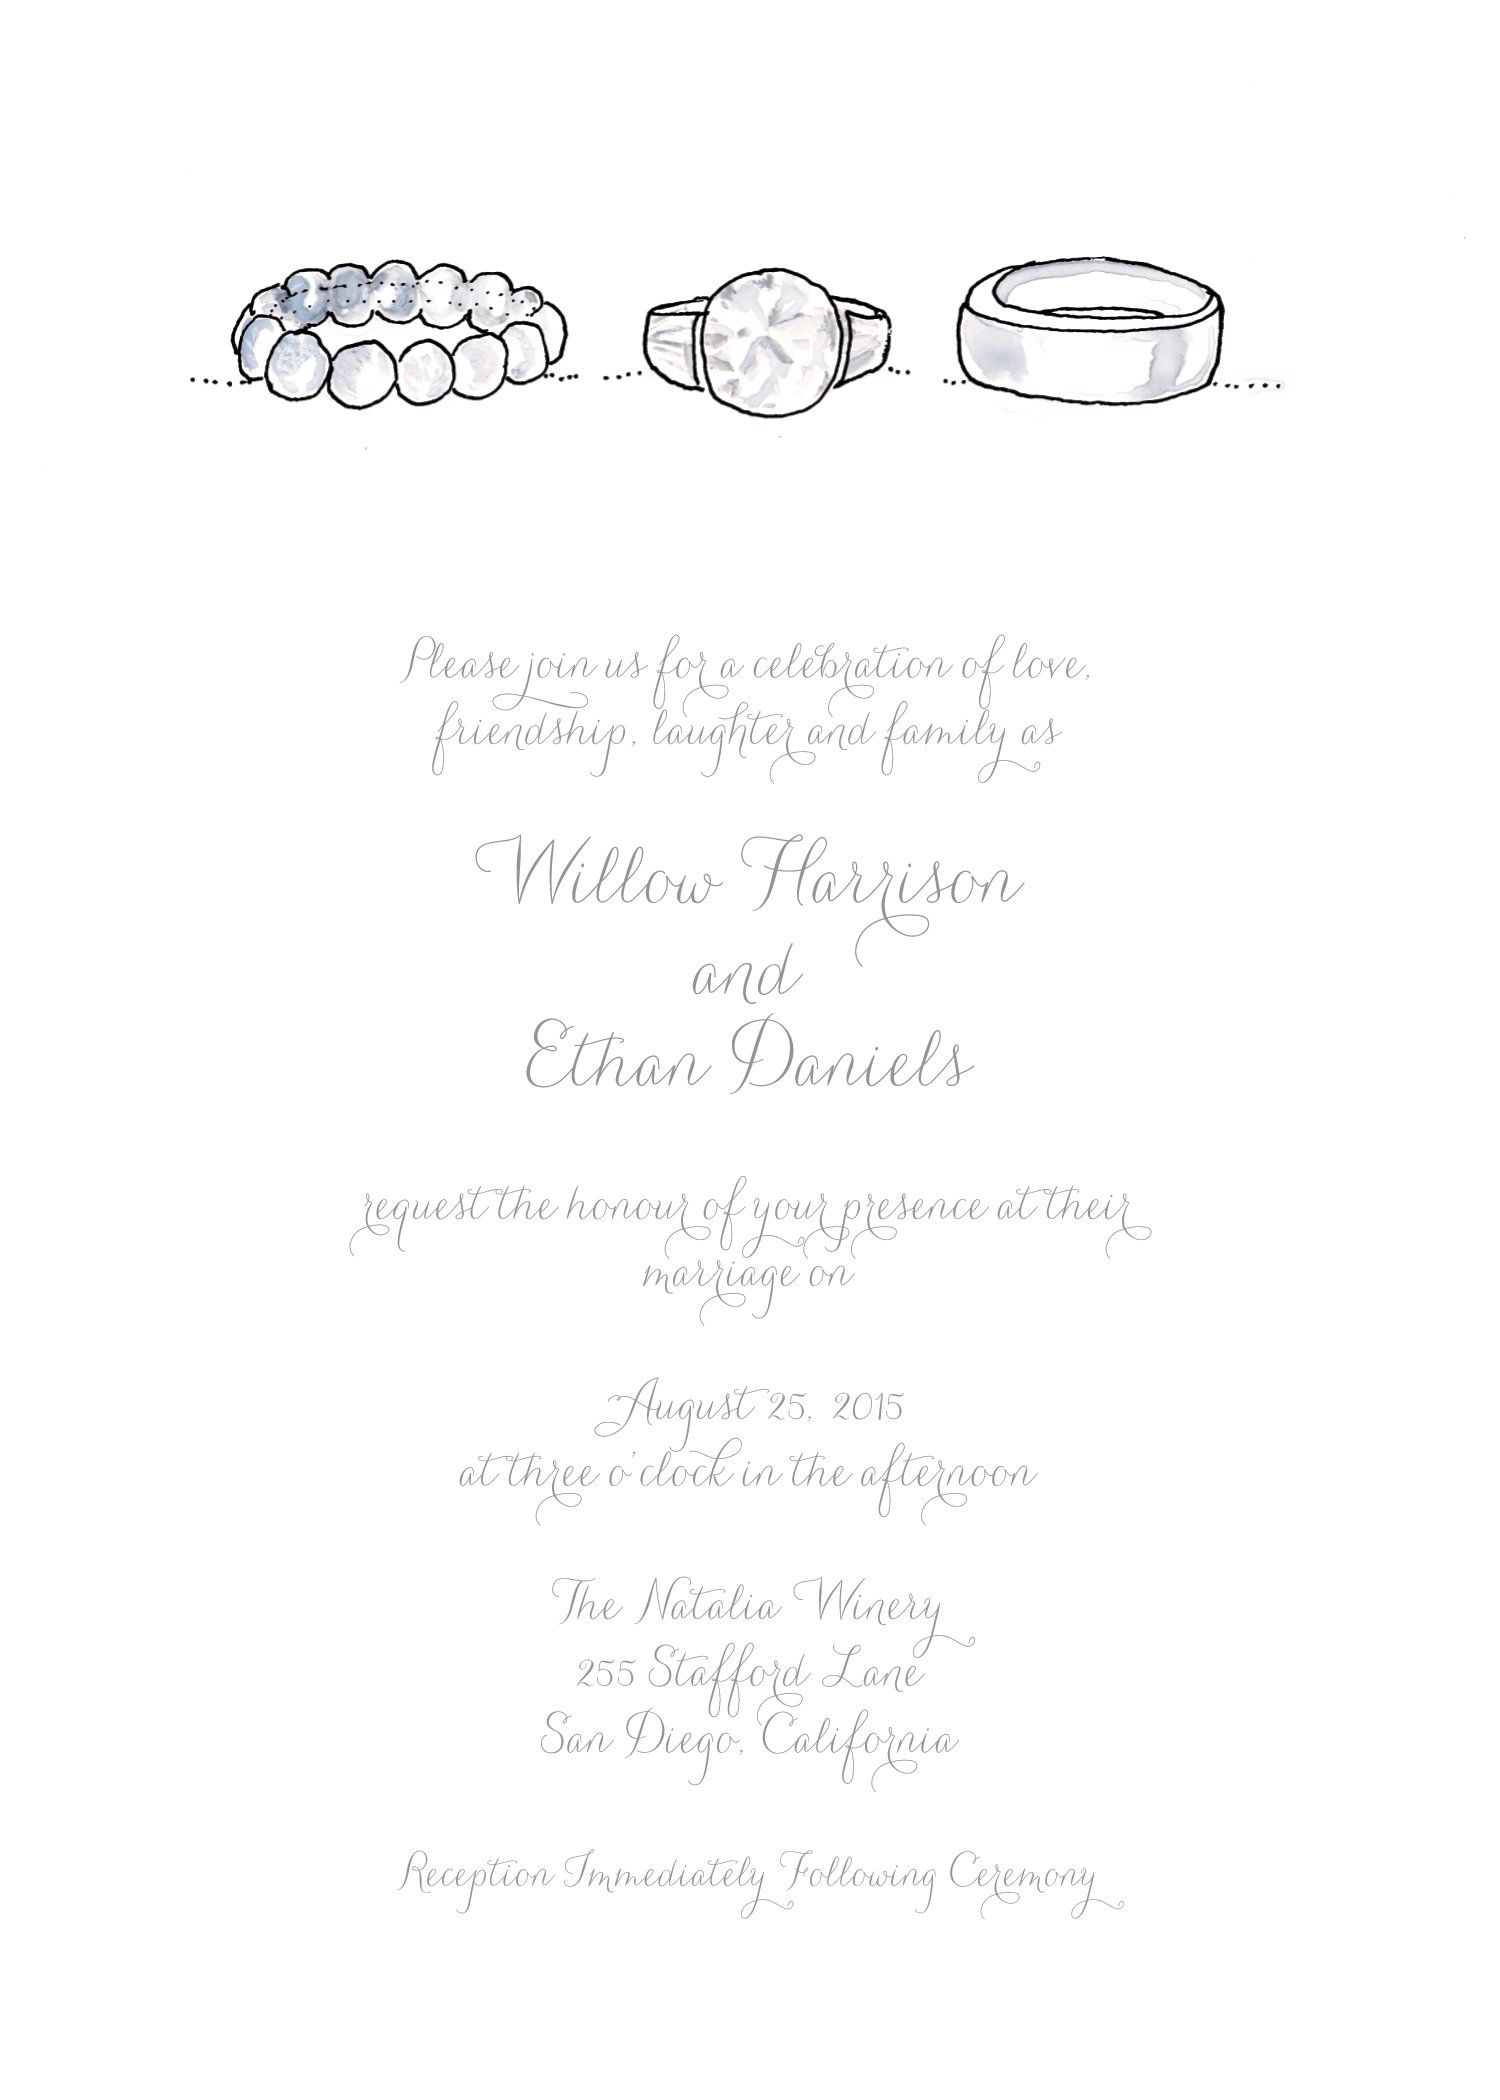 Please join us for a celebration of love,
friendship, laughter and family as
Willow Harrison
and
Ethan Daniels
request the honour of your presence at their
marriage on
August 25, 2015
at three o'clock in the afternoon
The Natalia Winery
255 Stafford Lane
San Diego, California
Reception Immediately Following Ceremony